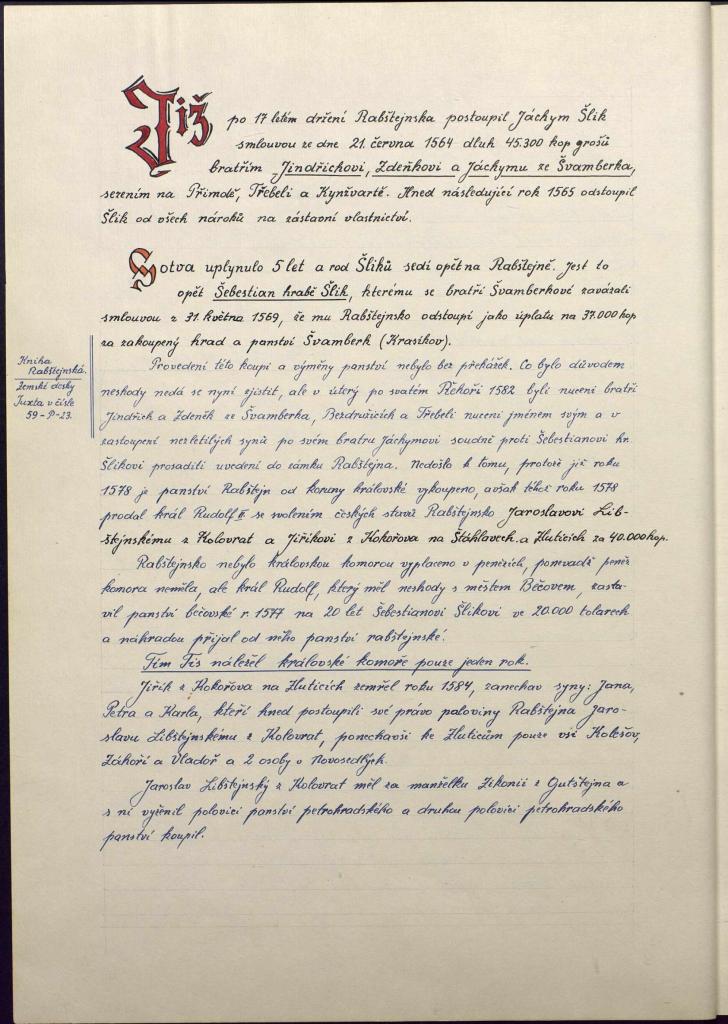 Již po 17 letém držení Rabštejnska postoupil Jáchym Šlik
smlouvou ze dne 21. června 1564 dluh 45.300 kop grošů
bratřím Jindřichovi, Zdeňkovi a Jáchymu ze Švamberka,
sezením na Přimdě, Třebeli a Kynžvartě. Hned následující rok 1565 odstoupil
Šlik od všech nároků na zástavní vlastnictví.
Sotva uplynulo 5 let a rod Šliků sedí opět na Rabštejně. Jest to
opět Šebestian hrabě Šlik, kterému se bratří Švamberkové zavázali
smlouvou z 31. května 1569, že mu Rabštejnsko odstoupí jako úplatu na 37.000 kop
za zakoupený hrad a panství Švamberk (Krasíkov).
Kniha
Rabštejnská.
Zemské desky
Juxta v čísle
59-P-23.
Provedení této koupi a výměny panství nebylo bez překážek. Co bylo důvodem
neshody nedá se nyní zjistit, ale v úterý po svatém Řehoři 1582 byli nuceni bratři
Jindřich a Zdeněk ze Švamberka, Bezdružicích a Třebeli nuceni jménem svým a v
zastoupení nezletilých synů po svém bratru Jáchymovi soudně proti Šebestianovi hr.
Šlikovi prosaditi uvedení do zámku Rabštejna. Nedošlo k tomu, protože již roku
1578 je panství Rabštejn od koruny královské vykoupeno, avšak téhož roku 1578
prodal král Rudolf II se svolením českých stavů Rabštejnsko Jaroslavovi Lib-
štejnskému z Kolovrat a Jiříkovi z Kokořova na Šťáhlavech a Žluticích za 40.000 kop.
Rabštejnsko nebylo královskou komorou vyplaceno v penězích, poněvadž peněz
komora neměla, ale král Rudolf, který měl neshody s městem Bečovem, zasta-
vil panství bečovské r. 1577 na 20 let Šebestianovi Šlikovi ve 20.000 tolarech
a náhradou přijal od něho panství rabštejnské.
Tím Tis náležel královské komoře pouze jeden rok.
Jiřík z Kokořova na Žluticích zemřel roku 1584, zanechav syny: Jana,
Petra a Karla, kteří hned postoupili své právo poloviny Rabštejna Jaro-
slavu Libštejnskému z Kolovrat, ponechavši ke Žluticům pouze vsi Kolešov,
Záhoří a Vladoř a 2 osoby v Novosedlých.
Jaroslav Libštejnský z Kolovrat měl za manželku Zikonii z Gutštejna a
s ní vyženil polovici panství petrohradského a druhou polovici petrohradského
panství koupil.